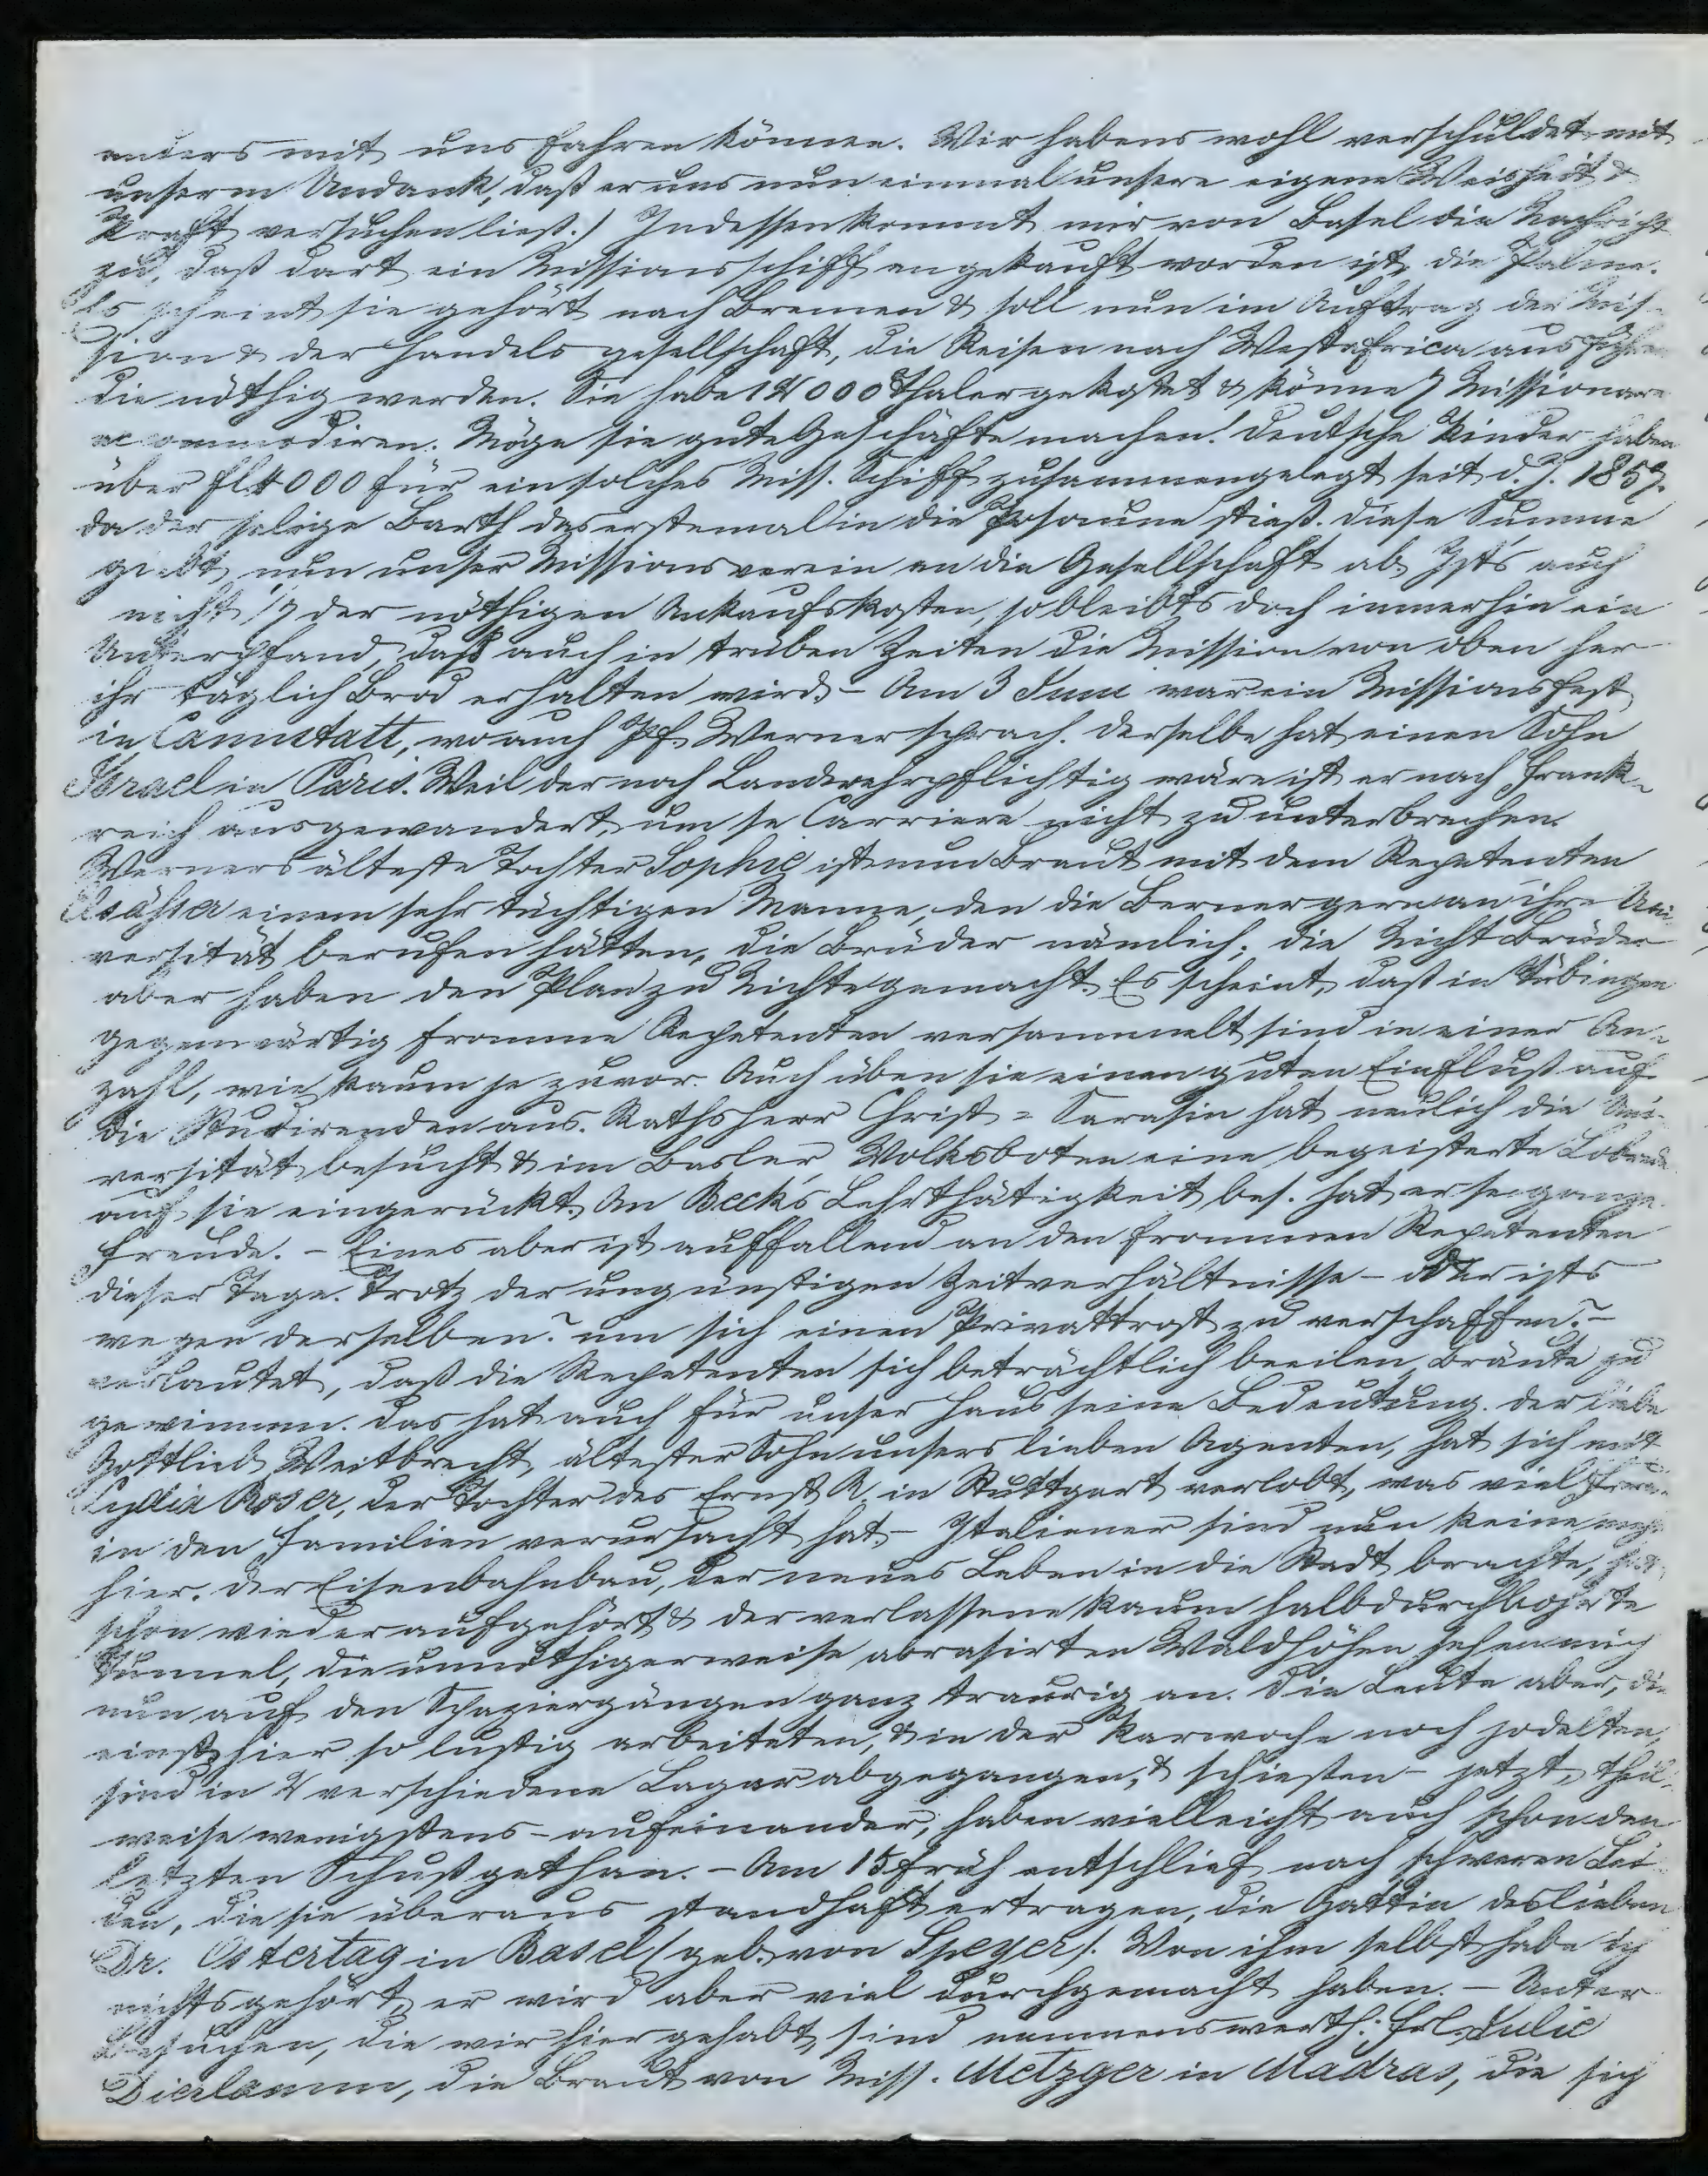 anders mit uns fahren können. Wir habens wohl verschuldet mit
unserm Undank, daß er uns nun einmal unsere eigene Weisheit &
Kraft versuchen ließ.) Indessen kommt mir von Basel die Nachricht
zu, daß dort ein Missionsschiff angekauft worden ist, die Palme.
Es scheint sie gehört nach Bremen & soll nun im Auftrag der Mis-
sion & der Handelsgesellschaft, die Reisen nach Westafrica ausführen
die nöthig werden. Sie habe 14000 Thaler gekostet & könne 7 Missionare
accommodiren. Möge sie gute Geschäfte machen! Deutsche Kinder haben
über fl 4000 für ein solches Miss. Schiff zusammengelegt seit d. J. 1857.
da der selige Barth das erstemal in die Posaune stieß. Diese Summe
giebt nun unser Missionsverein an die Gesellschaft ab. Ists auch
nicht 1/7 der nöthigen Ankaufskosten, so bleibts doch immerhin ein
Unterpfand, daß auch in trüben Zeiten die Mission von oben her
ihr täglich Brod erhalten wird. - Am 3 Juni war ein Missionsfest
in Cannstatt, wo auch Pf. Werner sprach. Derselbe hat einen Sohn
Israel in Paris. Weil der noch Landwehrpflichtig wäre ist er nach Frank-
reich ausgewandert, um se Carriere nicht zu unterbrechen.
Werners älteste Tochter Sophie ist nun Braut mit dem Repetenten
Elsäßer einem sehr tüchtigen Manne, den die Berner gern an ihre Uni-
versität berufen hätten, die Brüder nämlich; die Nicht Brüder
aber haben den Plan zu Nichte gemacht. Es scheint, daß in Tübingen
gegenwärtig fromme Repetenten versammelt sind in einer An-
zahl, wie kaum je zuvor. Auch üben sie einen guten Einfluß auf
die Studirenden aus. Rathsherr Christ = Sarasin hat neulich die Uni-
versität besucht & im Basler Volksboten eine begeisterte Lobrede
auf sie eingerückt. An Beck's Lehrthätigkeit bes. hat er se ganze
Freude. - Eines aber ist auffallend an den frommen Repetenten
dieser Tage. Trotz der ungünstigen Zeitverhältnisse - oder ists
wegen derselben? um sich einen Privattrost zu verschaffen? -
verlautet, daß die Repetenten sich beträchtlich beeilen, Bräute zu
gewinnen. Das hat auch für unser Haus seine Bedeutung. Der liebe
Gottlieb Weitbrecht, ältester Sohn unsers lieben Agenten, hat sich mit
Lydia Roser, der Tochter des Ernst R. in Stuttgart verlobt, was viel Freude
in den Familien verursacht hat. - Italiener sind nun keine mehr
hier. Der Eisenbahnbau, der neues Leben in die Stadt brachte, hat
schon wieder aufgehört & der verlassene kaum halbdurchbohrte
Tunnel, die unnöthigerweise abrasirten Waldhöhen sehen mich
nun auf den Spaziergängen ganz traurig an. Die Leute aber, die
einst hier so lustig arbeiteten, & in der Karwoche noch jodelten,
sind in 2 verschiedene Lager abgegangen, & schießen - jetzt, theil-
weise wenigstens - aufeinander, haben vielleicht auch schon den
letzten Schuß gethan. - Am 15 früh entschlief nach schweren Lei-
den, die sie überaus standhaft ertragen, die Gattin des lieben
Dr. Ostertag in Basel (geb. von Speyer). Von ihm selbst habe ich
nichts gehört, er wird aber viel durchgemacht haben. - Unter
Besuchen, die wir hier gehabt, sind nennenswerth: Frl. Julie
Dierlamm, die Braut von Miss. Metzger in Madras, die sich